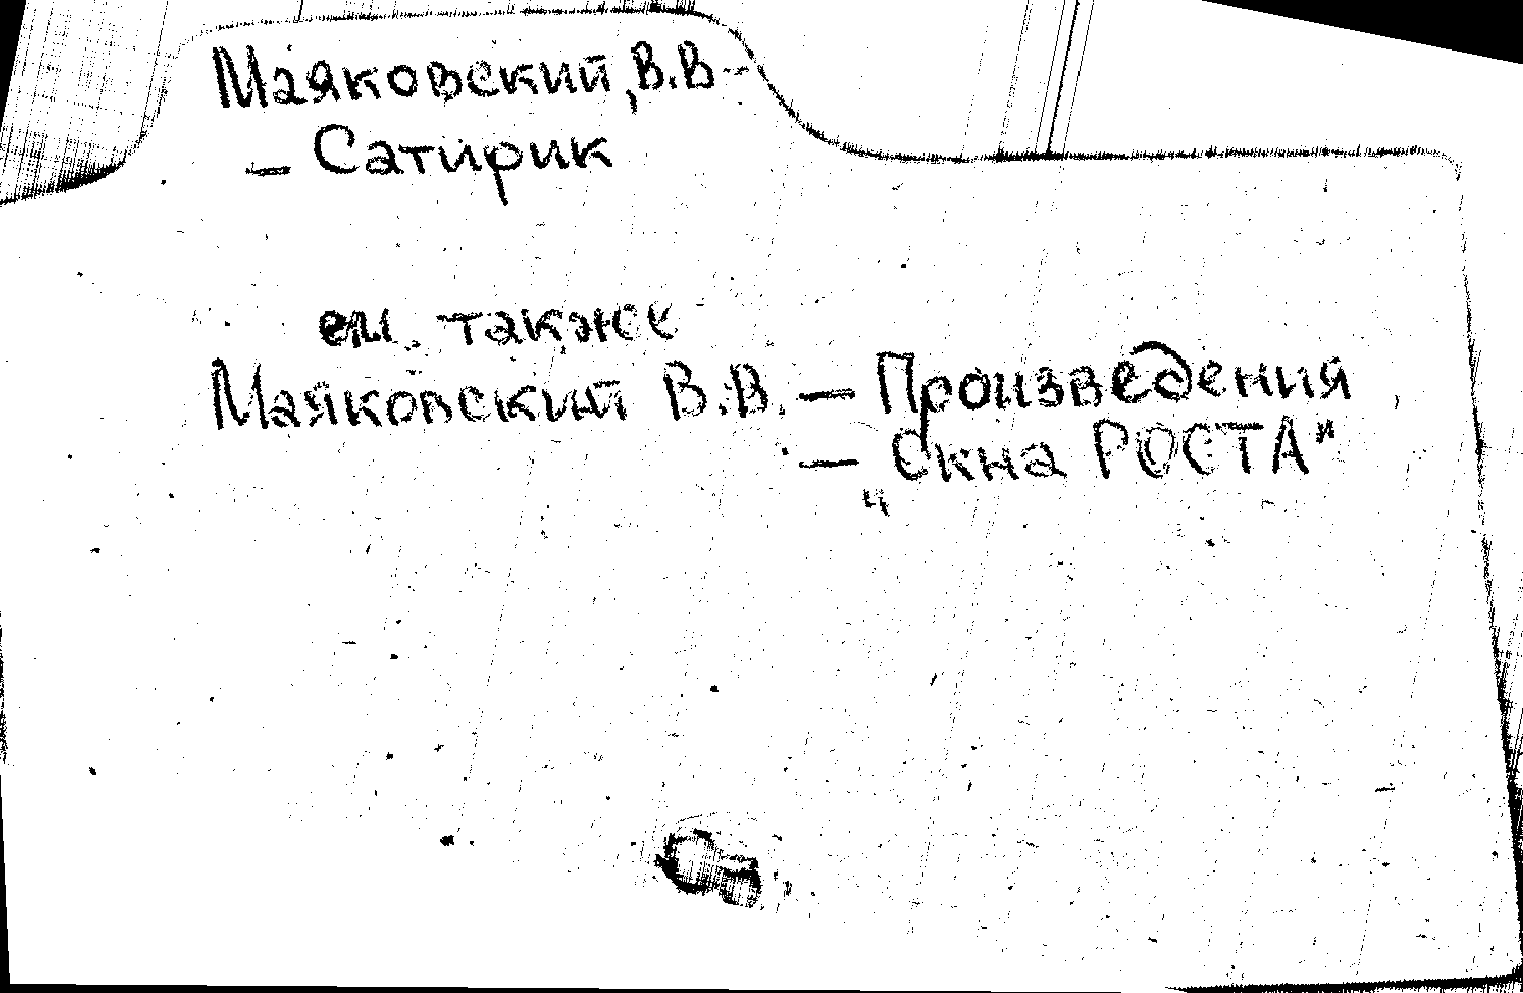 Маяковский, В.В –
– Сатирик
см. также
Маяковский В.В. – Произведения
– „Окна РОСТА"